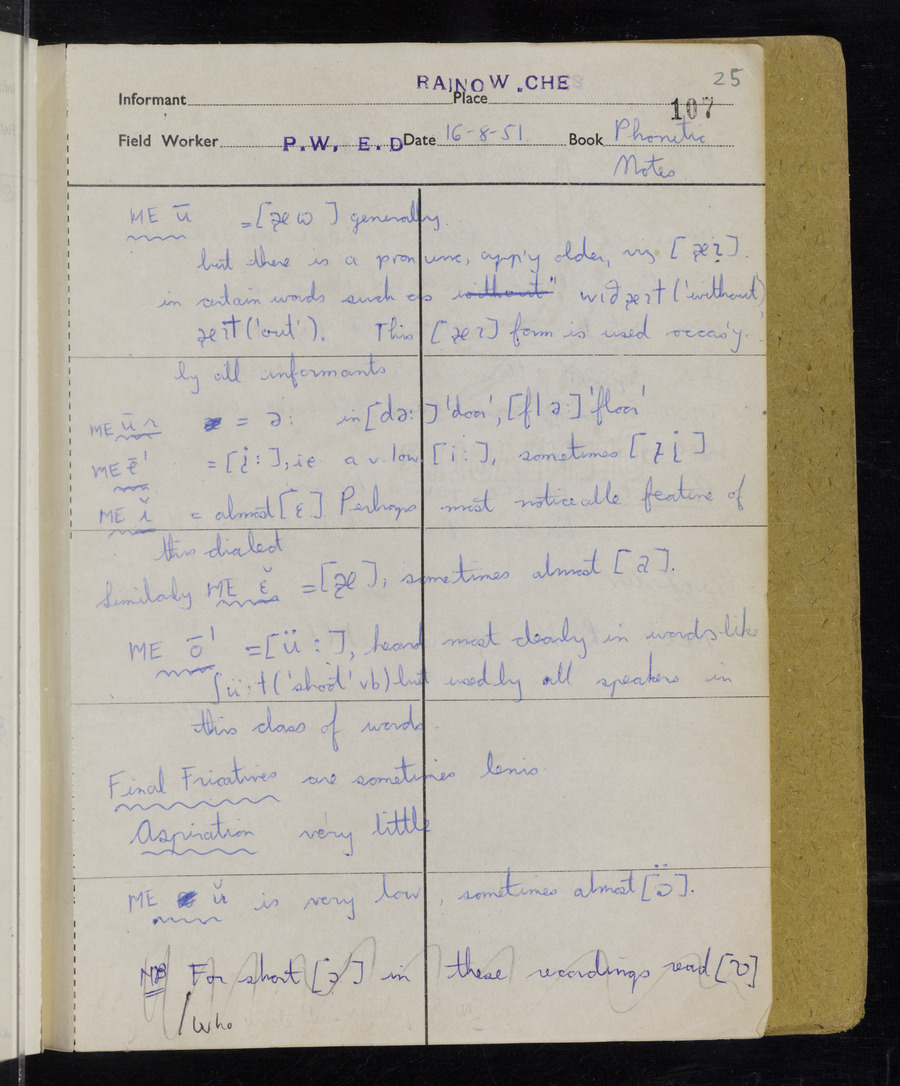 RAINOW .CHE 25
Informant Place 107
Field Worker P.W, E.D Date 16-8-51. Book Phonetic
Notes
ME ū = [æω] generally.
but there is a pronunc, app'y older, viz [æɪ].
in certain words such as without" wiðæɪt ('without')
æɪt ('out'). This [æɪ] form is used occas'y.
by all informants
ME ū r = ə: in [də:] 'door', [flə:] 'floor'
ME ē' = [i̞:], ie a v. low [i:], sometimes [ɪi̞]
ME ĭ = almost [ɛ]. Perhaps most noticeable feature of
this dialect
Similarly ME ɛ̆ = [æ], sometimes almost [a].
ME ō' = [ü:], heard most clearly in words like
ʃü:t ('shoot' vb) but used by all speakers in
this class of words.
Final Fricatives are sometimes lenis
Aspiration very little
ME ŭ is very low, sometimes almost [ɔ̈].
NB For short [ɔ] in these recordings read [ʊ]
/who